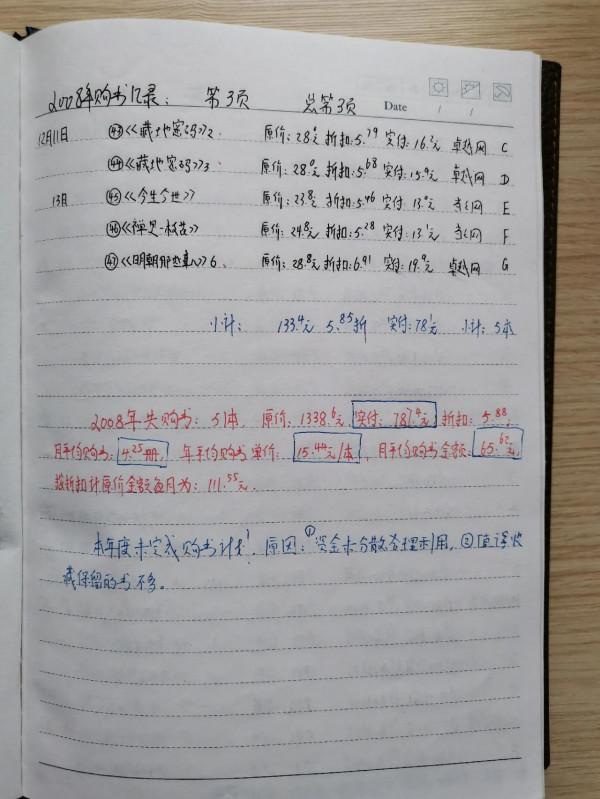 2008年购书记录: 第3页 总第3页 Date / /
12月11日 ㊸《藏地密码》2 原价:28.0元 折扣:5.79 实付:16.2元 卓越网 C
㊹《藏地密码》3 原价:28.0元 折扣:5.68 实付:15.9元 卓越网 D
13日 ㊺《今生今世》 原价:23.8元 折扣:5.46 实付:13.0元 当当网 E
㊻《禅是一枝花》 原价:24.8元 折扣:5.28 实付:13.1元 当当网 F
㊼《明朝那些事儿》6. 原价:28.8元 折扣:6.91 实付:19.9元 卓越网 G
小计: 133.4元 5.85折 实付:78.1元 小计:5本
2008年共购书:51本, 原价:1338.6元, 实付:787.4元, 折扣:5.88,
月平均购书:4.25册, 年平均购书单价:15.44元/本, 月平均购书金额:65.62元,
按折扣计原价金额每月为:111.55元.
本年度未完成购书计划! 原因:①资金未分散合理利用,②值得收
藏保留的书不多。